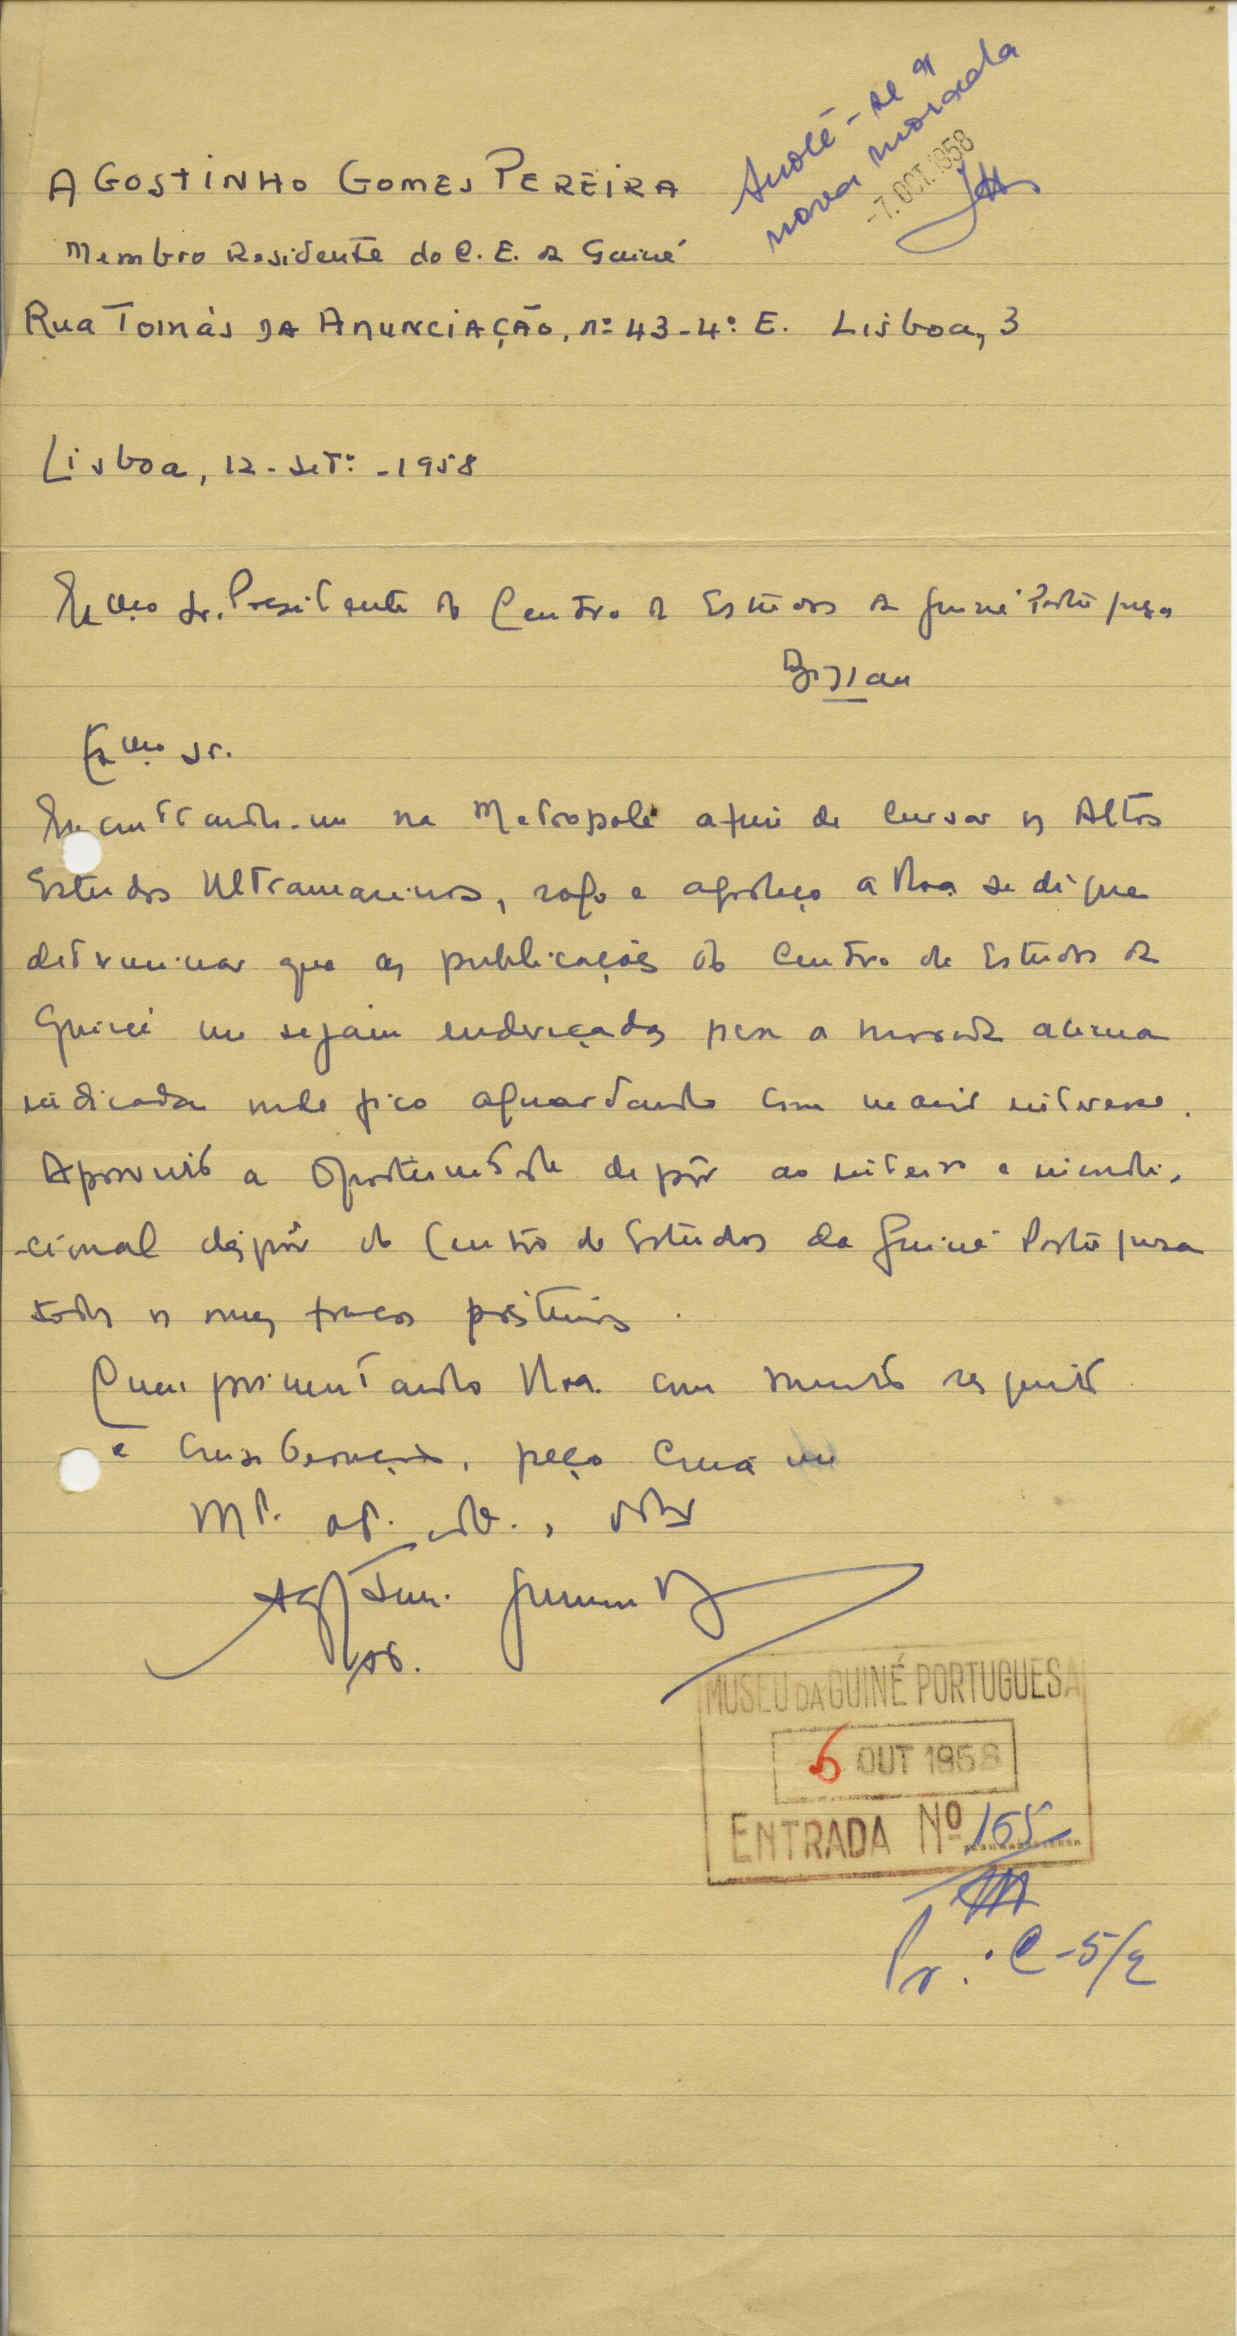 Anote-se a
nova morada
-7.OCT.1958
AGOSTINHO GOMES PEREIRA
Membro Residente do C. E. da Guiné
Rua Tomás da Anunciação, nº 43-4º E. Lisboa, 3
Lisboa, 12-setº-1958
Exmo Sr. Presidente do Centro de Estudos da Guiné Portuguesa
Bissau
Exmo Sr.
Encontrando-me na Metropole afim de cursar os Altos
Estudos Ultramarinos, rogo e agradeço a Vexa se digne
determinar que as publicações do Centro de Estudos da
Guiné me sejam endereçadas para a morada acima
indicada onde fico aguardando com maior interesse.
Aproveito a oportunidade de pôr ao inteiro e incondi-
cional dispôr do Centro de Estudos da Guiné Portuguesa
todos os meus fracos préstimos.
Cumprimentando Vexa. com muito respeito
e consideração, peço creia me
Mt. at. vdor., obdo
Agostinho Gomes Pereira
MUSEU DA GUINÉ PORTUGUESA
6 OUT 1958
ENTRADA Nº 165
Pr.: C-5/2